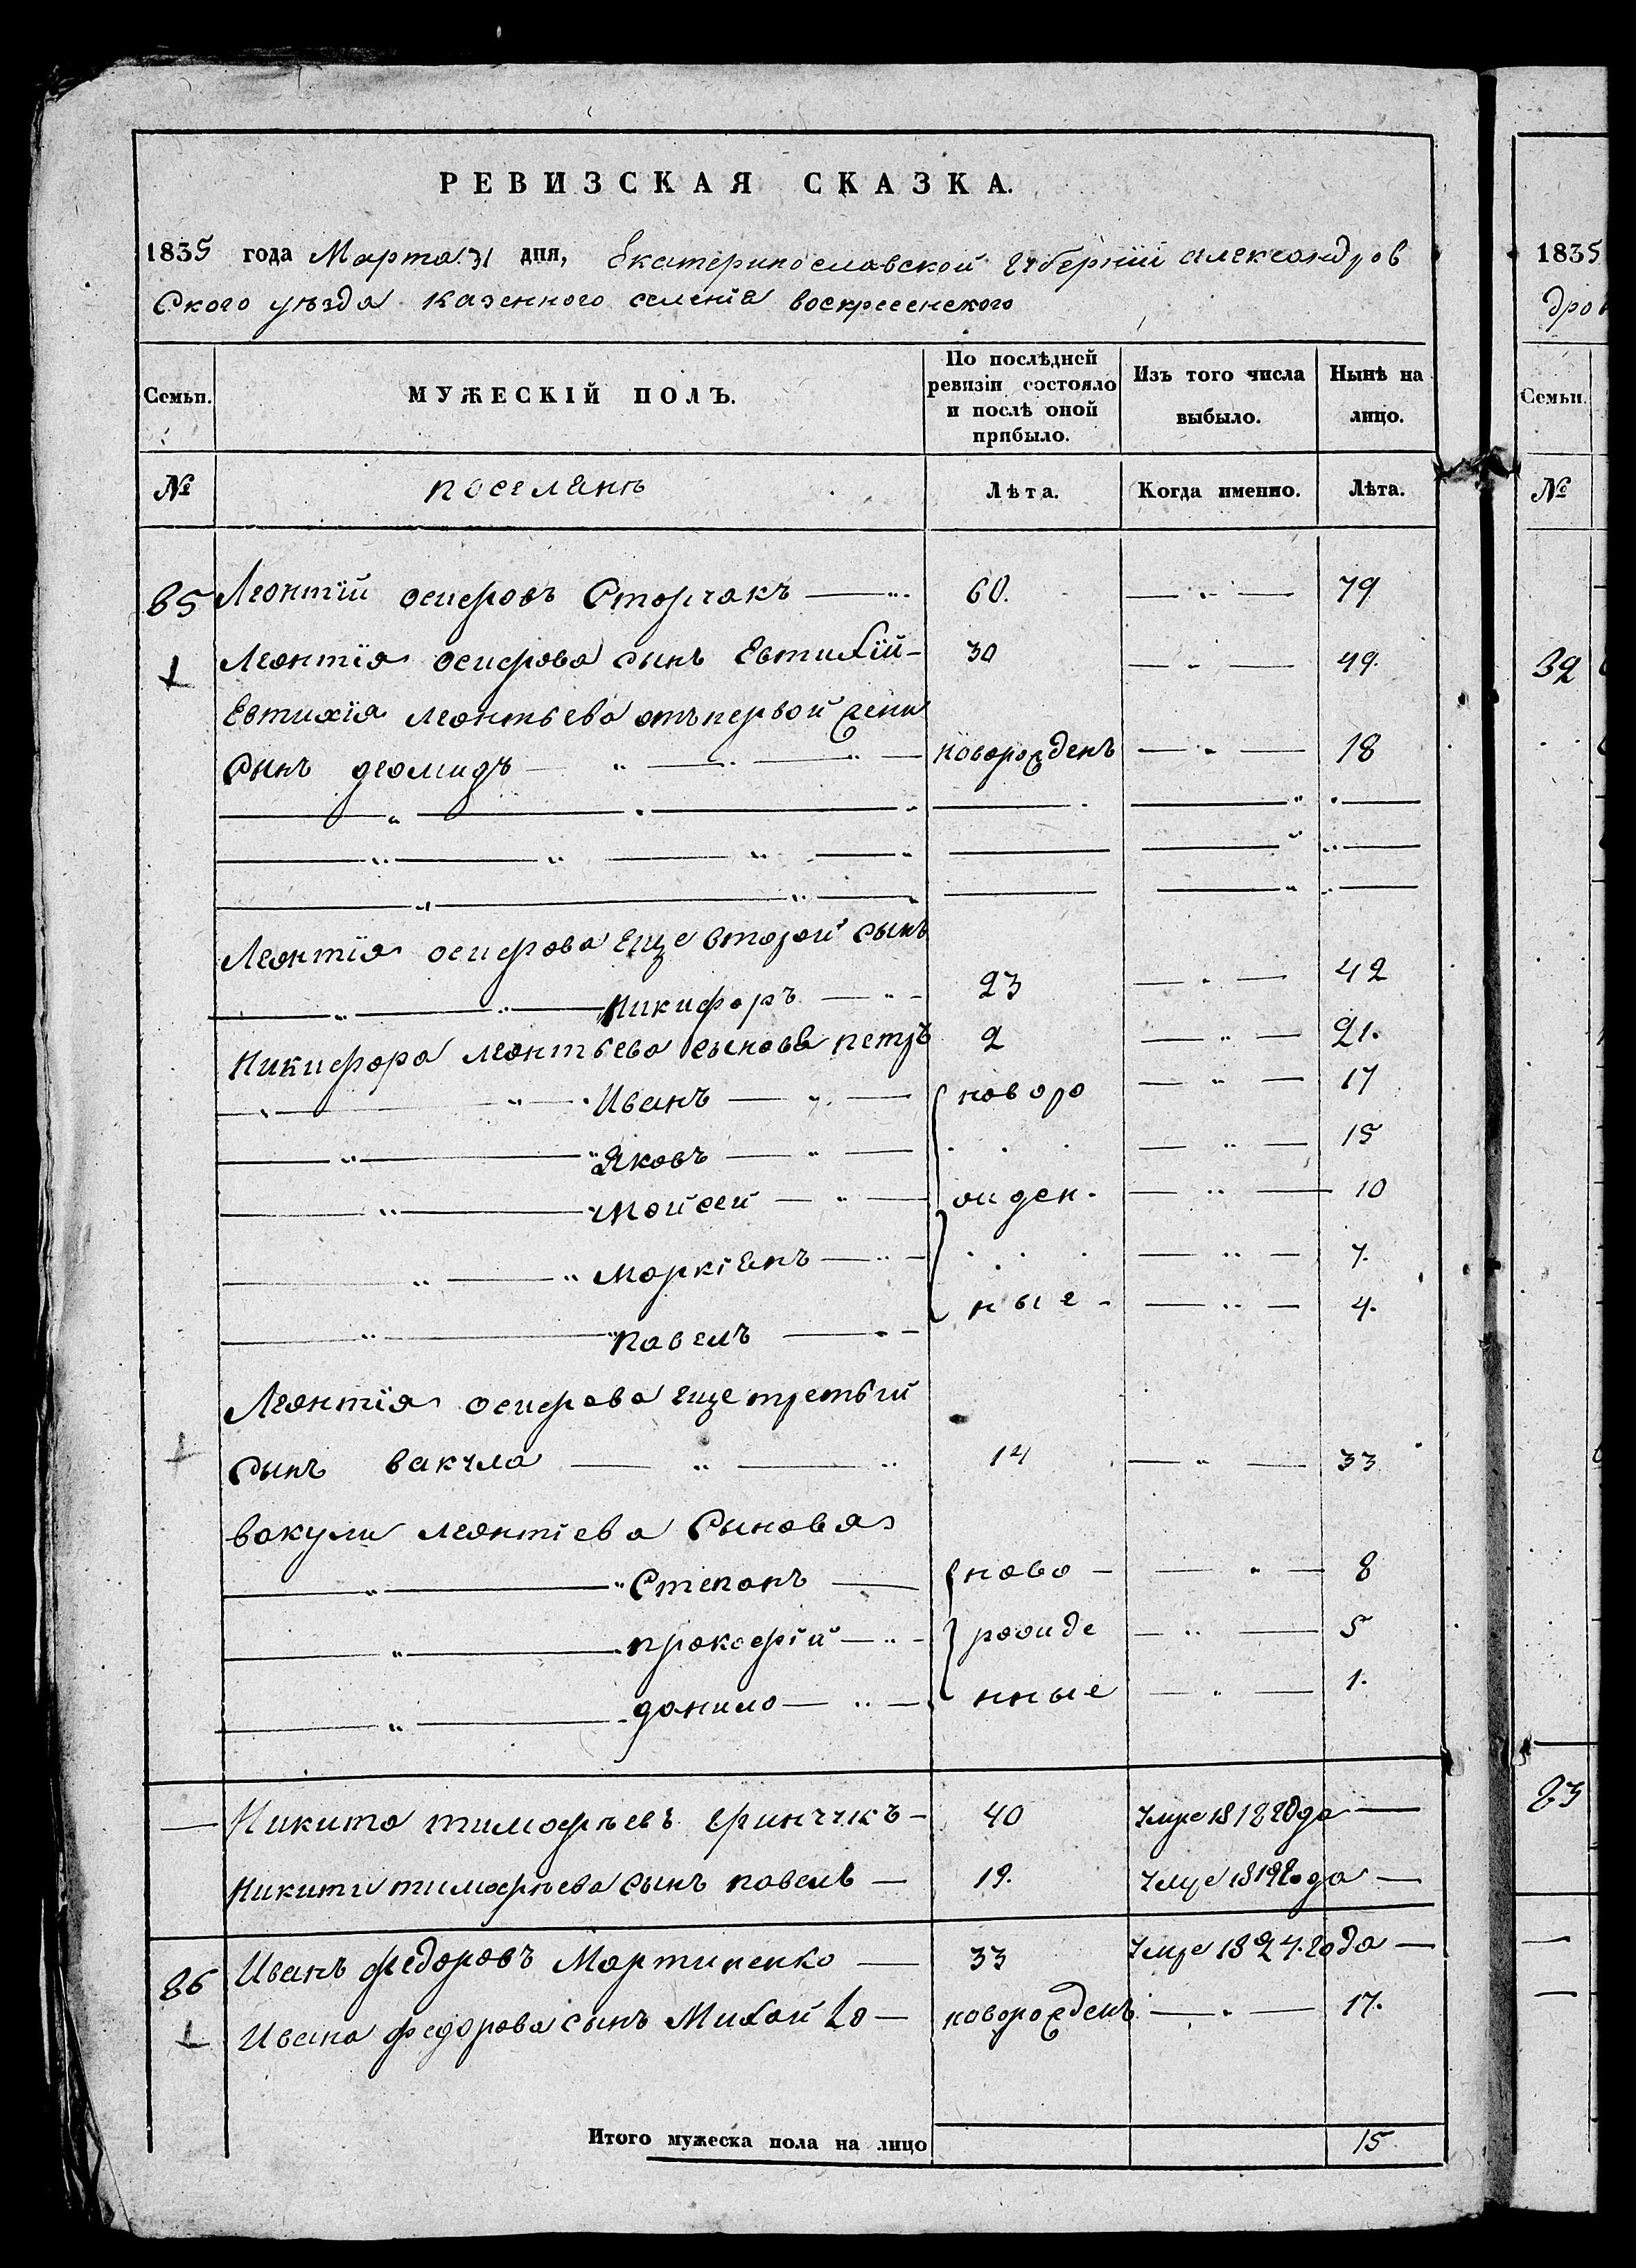 РЕВИЗСКАЯ СКАЗКА.
1835 года Марта 31 дня, Екатеринославской губернiи александров
Ского уѣзда казенного селенiя воскресенского
Семьи. МУЖЕСКIЙ ПОЛЪ. По послѣдней ревизiи состояло и послѣ оной прибыло. Изъ того числа выбыло. Нынѣ на лицо.
№ поселянъ Лѣта. Когда именно. Лѣта.
85 Леонтiй осифовъ Сторчакъ 60. 79
Леонтiя осифова сынъ Евтихiй 30 49.
Евтихiя леонтьева отъ первой жени
Сынъ деомидъ новорожденъ 18
Леонтiя осифова еще второй сынъ
Никифоръ 23 42
Никифора леонтьева сыновя петръ 2 21.
Иванъ новоро 17
Яковъ 15
Мойсей жден. 10
Маркiенъ 7.
павелъ ные 4.
Леонтiя осифова еще третьий
Сынъ вакула 14 33
вакули леонтiева Сыновя
Степанъ ново 8
прокофiй рожде 5
данило нные 1.
Никита тимофѣевъ гринчукъ 40 Умре 1818 года
Никити тимофѣева сынъ павелъ 19. Умре 1819 года
86 Иванъ федоровъ Мартиненко 33 Умре 1827. года
Ивана федорова сынъ Михайло новорожденъ 17.
Итого мужеска пола на лицо 15
1835
дров
Семьи.
№
32
83